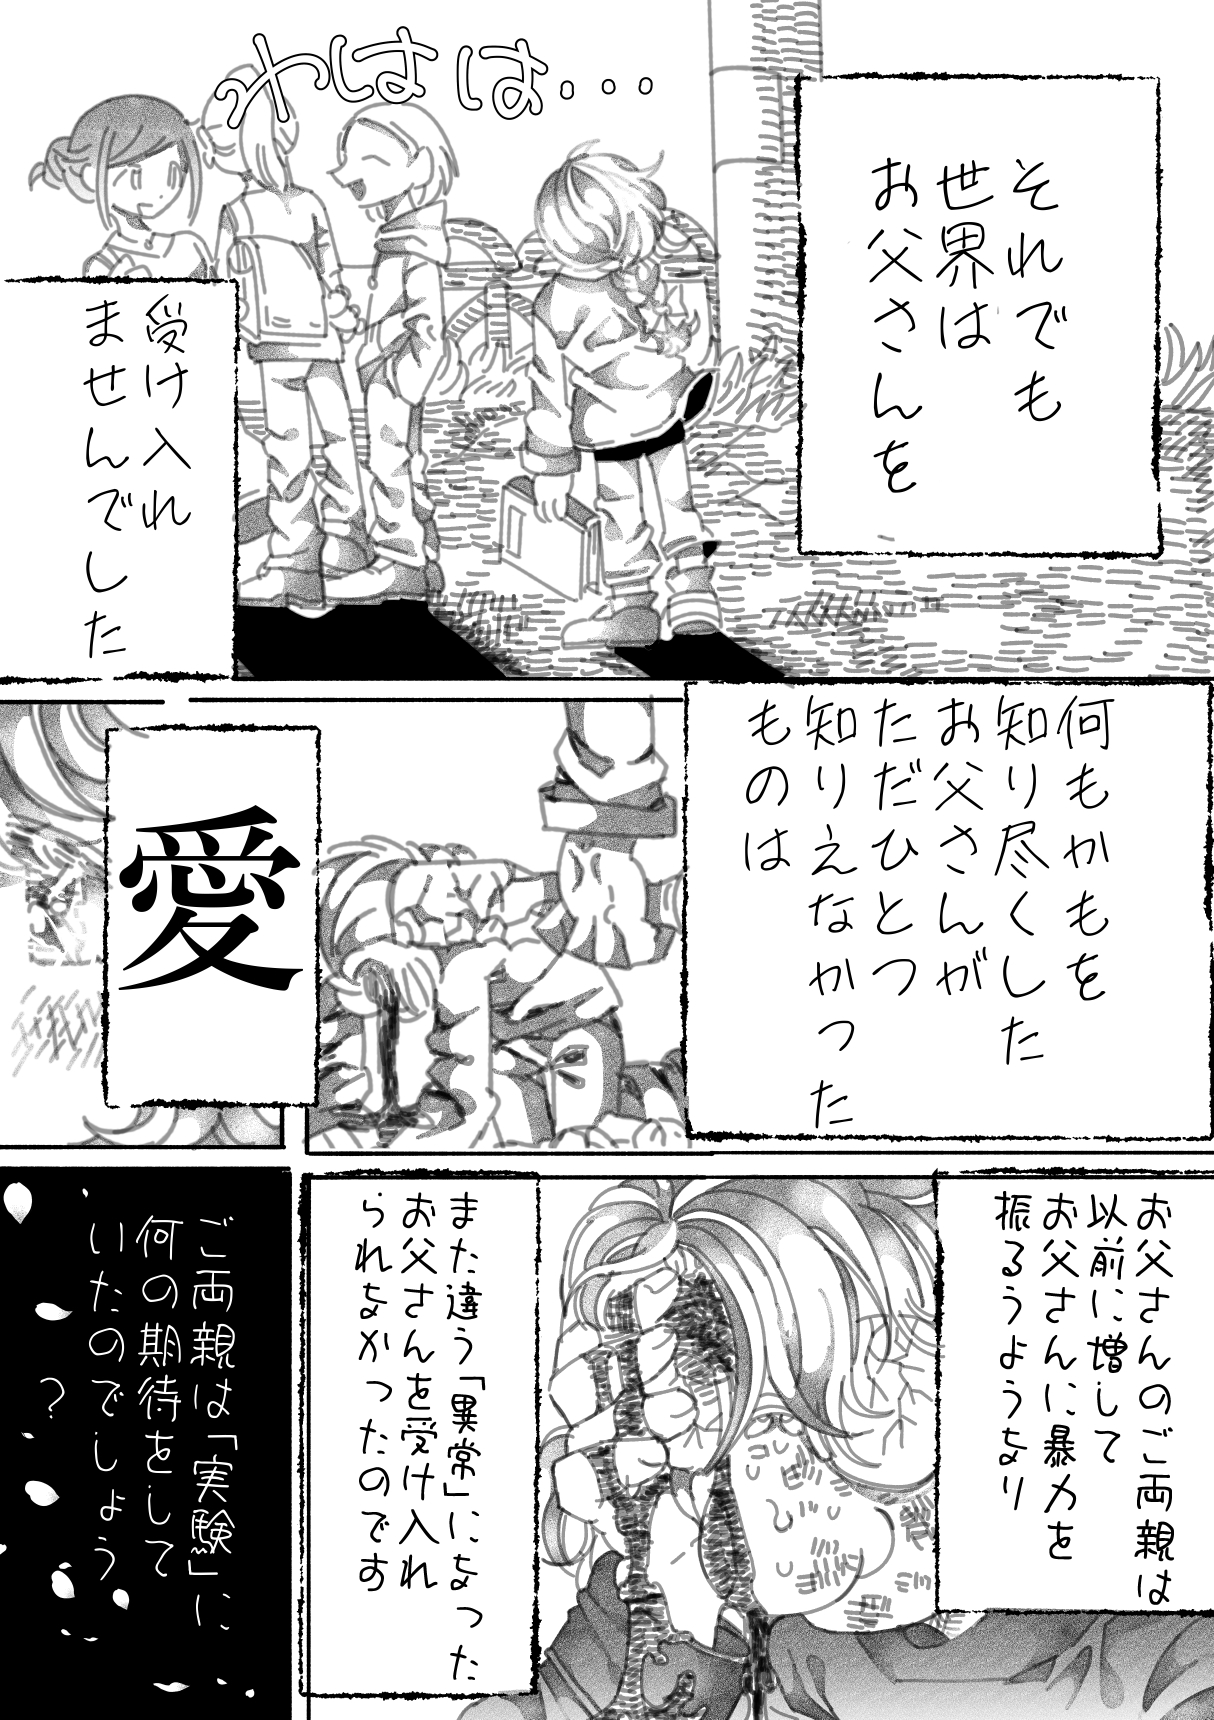 わはは...
それでも
世界は
お父さんを
受け入れ
ませんでした
何もかもを
知り尽くした
お父さんが
ただひとつ
知りえなかった
ものは
愛
お父さんのご両親は
以前に増して
お父さんに暴力を
振るうようなり
また違う「異常」になった
お父さんを受け入れ
られなかったのです
ご両親は「実験」に
何の期待をして
いたのでしょう
?